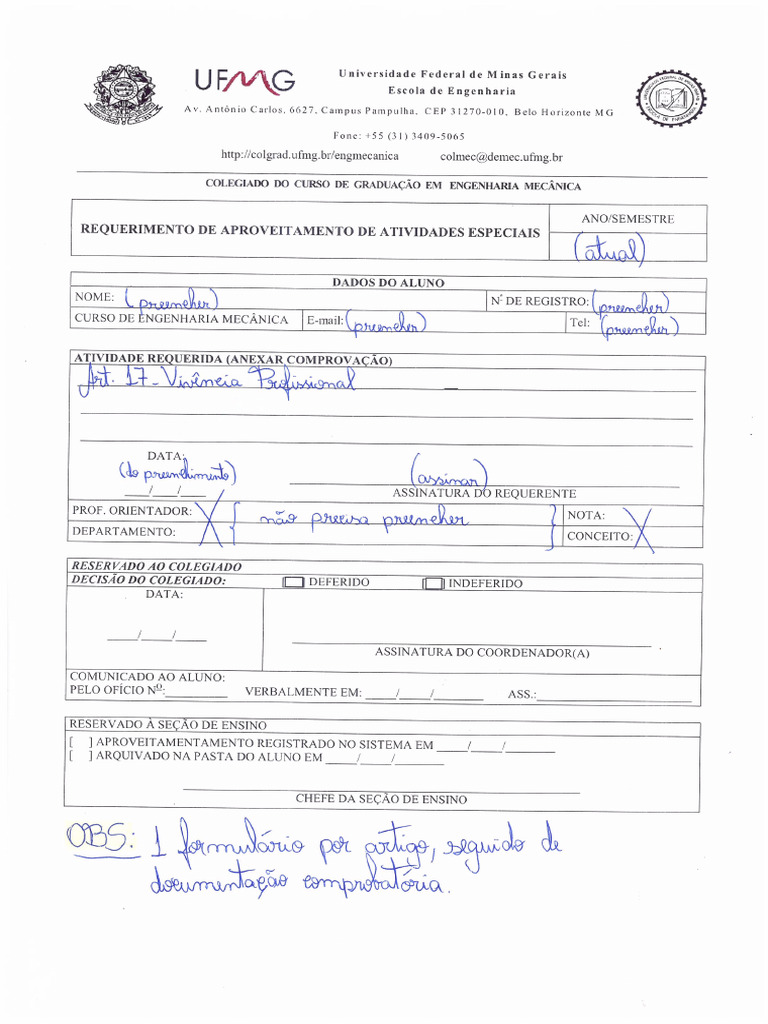 UFMG
Universidade Federal de Minas Gerais
Escola de Engenharia
Av. Antônio Carlos, 6627, Campus Pampulha, CEP 31270-010, Belo Horizonte MG
Fone: +55 (31) 3409-5065
http://colgrad.ufmg.br/engmecanica colmec@demec.ufmg.br
COLEGIADO DO CURSO DE GRADUAÇÃO EM ENGENHARIA MECÂNICA
REQUERIMENTO DE APROVEITAMENTO DE ATIVIDADES ESPECIAIS
ANO/SEMESTRE
(atual)
DADOS DO ALUNO
NOME: (preencher) Nº DE REGISTRO: (preencher)
CURSO DE ENGENHARIA MECÂNICA E-mail: (preencher) Tel: (preencher)
ATIVIDADE REQUERIDA (ANEXAR COMPROVAÇÃO)
Art. 17 - Vivência Profissional
DATA:
(do preenchimento) (assinar)
___/___/___ ASSINATURA DO REQUERENTE
PROF. ORIENTADOR: X { não precisa preencher } NOTA: X
DEPARTAMENTO: CONCEITO:
RESERVADO AO COLEGIADO
DECISÃO DO COLEGIADO: DEFERIDO INDEFERIDO
DATA:
____/____/____
ASSINATURA DO COORDENADOR(A)
COMUNICADO AO ALUNO:
PELO OFÍCIO Nº:_________ VERBALMENTE EM: ____/____/_____ ASS.:____________
RESERVADO À SEÇÃO DE ENSINO
[ ] APROVEITAMENTAMENTO REGISTRADO NO SISTEMA EM ____/____/_______
[ ] ARQUIVADO NA PASTA DO ALUNO EM ____/____/_______
CHEFE DA SEÇÃO DE ENSINO
OBS: 1 formulário por artigo, seguido de
documentação comprobatória.